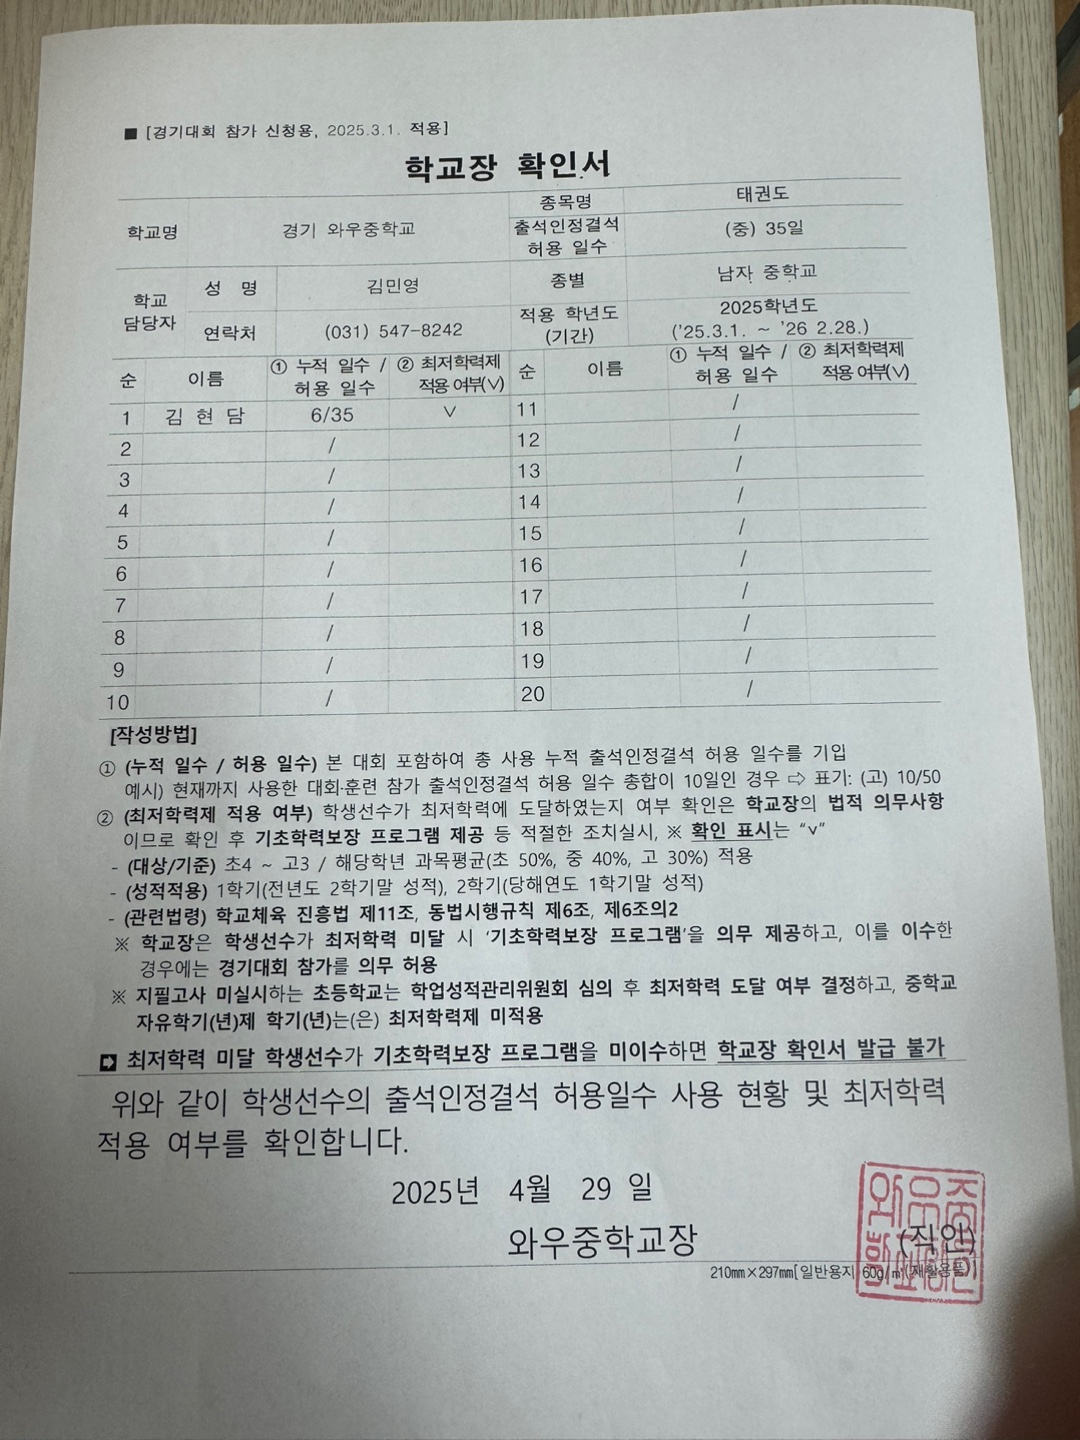 ■ [경기대회 참가 신청용, 2025.3.1. 적용]
학교장 확인서
학교명 경기 와우중학교 종목명 태권도
출석인정결석 허용 일수 (중) 35일
학교 담당자 성 명 김민영 종별 남자 중학교
연락처 (031) 547-8242 적용 학년도 (기간) 2025학년도 ('25.3.1. ~ '26 2.28.)
순 이름 ① 누적 일수 / 허용 일수 ② 최저학력제 적용 여부(∨) 순 이름 ① 누적 일수 / 허용 일수 ② 최저학력제 적용 여부(∨)
1 김 현 담 6/35 ∨ 11 /
2 / 12 /
3 / 13 /
4 / 14 /
5 / 15 /
6 / 16 /
7 / 17 /
8 / 18 /
9 / 19 /
10 / 20 /
[작성방법]
① (누적 일수 / 허용 일수) 본 대회 포함하여 총 사용 누적 출석인정결석 허용 일수를 기입
예시) 현재까지 사용한 대회·훈련 참가 출석인정결석 허용 일수 총합이 10일인 경우 ⇨ 표기: (고) 10/50
② (최저학력제 적용 여부) 학생선수가 최저학력에 도달하였는지 여부 확인은 학교장의 법적 의무사항
이므로 확인 후 기초학력보장 프로그램 제공 등 적절한 조치실시, ※ 확인 표시는 “v”
- (대상/기준) 초4 ~ 고3 / 해당학년 과목평균(초 50%, 중 40%, 고 30%) 적용
- (성적적용) 1학기(전년도 2학기말 성적), 2학기(당해연도 1학기말 성적)
- (관련법령) 학교체육 진흥법 제11조, 동법시행규칙 제6조, 제6조의2
※ 학교장은 학생선수가 최저학력 미달 시 '기초학력보장 프로그램'을 의무 제공하고, 이를 이수한
경우에는 경기대회 참가를 의무 허용
※ 지필고사 미실시하는 초등학교는 학업성적관리위원회 심의 후 최저학력 도달 여부 결정하고, 중학교
자유학기(년)제 학기(년)는(은) 최저학력제 미적용
➡ 최저학력 미달 학생선수가 기초학력보장 프로그램을 미이수하면 학교장 확인서 발급 불가
위와 같이 학생선수의 출석인정결석 허용일수 사용 현황 및 최저학력
적용 여부를 확인합니다.
2025년 4월 29 일
와우중학교장 (직인)
210㎜×297㎜[일반용지 60g/㎡(재활용품)]